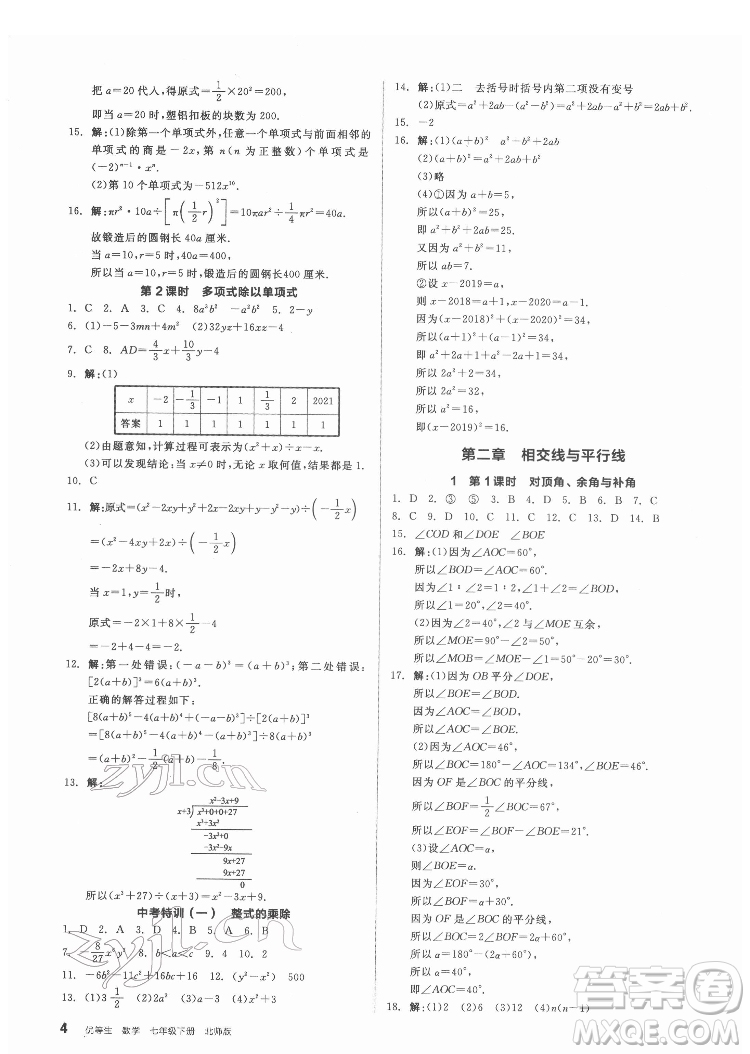 把 a=20 代人,得原式=1/2×20²=200,
即当 a=20 时,塑铝扣板的块数为 200.
15. 解:(1)除第一个单项式外,任意一个单项式与前面相邻的
单项式的商是-2x,第 n(n 为正整数)个单项式是
(-2)ⁿ⁻¹·xⁿ.
(2)第 10 个单项式为-512x¹⁰.
16. 解:πr²·10a÷[π(1/2 r)²]=10πar²÷1/4πr²=40a.
故锻造后的圆钢长 40a 厘米.
当 a=10 时,40a=400.
所以当 a=10 时,锻造后的圆钢长400 厘米.
第 2 课时 多项式除以单项式
1. C 2. A 3. C 4. 8a³b² -a²b² 5. 2-y
6. (1)-5-3mn+4m² (2)32yz+16xz-4
7. C 8. AD=4/3x+10/3y-4
9. 解:(1)
x -2 -1/3 -1 1 1/3 2 2021
答案 1 1 1 1 1 1 1
(2)由题意知,计算过程可表示为(x²+x)÷x-x.
(3)发现当 x≠0 时,无论 x 取何值,结果均为 1.
10. C
11. 解:原式=(x²-2xy+y²+2x²-2xy+xy-y²-2x²)÷(-1/2 x)
=(x²-4xy+2x)÷(-1/2 x)
=-2x+8y-4.
当 x=1,y=1/2时,
原式=-2×1+8×1/2-4
=-2+4-4=-2.
12. 解:第一处错误:(-a-b)³=(a+b)³;第二处错误:
[2(a+b)]³=2(a+b)³.
正确的解答过程如下:
[8(a+b)⁵-4(a+b)⁴+(-a-b)³]÷[2(a+b)]³
=[8(a+b)⁵-4(a+b)⁴-(a+b)³]÷8(a+b)³
=(a+b)²-1/2(a+b)-1/8.
13. 解:
x²-3x+9
x+3)x³+0+0+27
x³+3x²
-3x²+0
-3x²-9x
9x+27
9x+27
0
所以(x³+27)÷(x+3)=x²-3x+9.
中考特训(一) 整式的乘除
1. D 2. A 3. D 4. C 5. C 6. D
7. -8/27x⁶y³ 8. b<a<c 9. 4 10. 2
11. -6b²-2ab+12 12. (y²-x²) 500
13. (1)3 1/2 (2)2 (3)4
4 优等生 数学 七年级下册 北师版
14. 解:(1)二 去括号时括号内第二项没有变号
(2)原式=a²+2ab-(a²-b²)=a²+2ab-a²+b²=2ab+b².
15. -2
16. 解:(1)(a+b)²=a²+2ab+b²
(2)(a+b)²=(a-b)²+4ab
(3)略
(4)①因为a+b=5,
所以(a+b)²=25,
即 a²+b²+2ab=25.
又因为 a²+b²=11,
所以 ab=7.
②设 x-2019=a,
则 x-2018=a+1,x-2020=a-1.
因为(x-2018)²+(x-2020)²=34,
所以(a+1)²+(a-1)²=34,
即 a²+2a+1+a²-2a+1=34,
所以 2a²+2=34.
所以 2a²=32.
所以 a²=16.
即(x-2019)²=16.
第二章 相交线与平行线
1 第 1 课时 对顶角、余角与补角
1. D 2. ③ ⑤ 3. D 4. A 5. B 6. B 7. C
8. C 9. C 10. C 11. D 12. D 13. A 14. A
15. ∠COD和∠DOE ∠BOE
16. 解:(1)因为∠AOC=60°,
所以∠BOD=∠AOC=60°.
因为∠1∶∠2=1∶2,∠1+∠2=60°,
所以∠1=20°,∠2=40°.
(2)因为∠2=40°,∠2与∠MOE 互余,
所以∠MOE=90°-∠2=50°,
所以∠NOE=180°-∠MOE=130°.
17. 解:(1)因为 OB 平分∠DOE,
所以∠BOE=∠BOD.
因为∠AOC=∠BOD,
所以∠AOC=∠BOE.
(2)因为∠AOC=46°,
所以∠BOC=180°-∠AOC=134°.
因为 OF 是∠BOC 的平分线,
所以∠BOF=1/2∠BOC=67°,
所以∠EOF=∠BOF-∠BOE=21°.
(3)设∠AOC=α,
则∠BOE=α.
因为∠EOF=30°,
所以∠BOF=α+30°.
因为 OF 是∠BOC 的平分线,
18. 解:(1)2 (2)6 (3)12 (4)n(n-1)
zyjl.cn
zyjl.cn